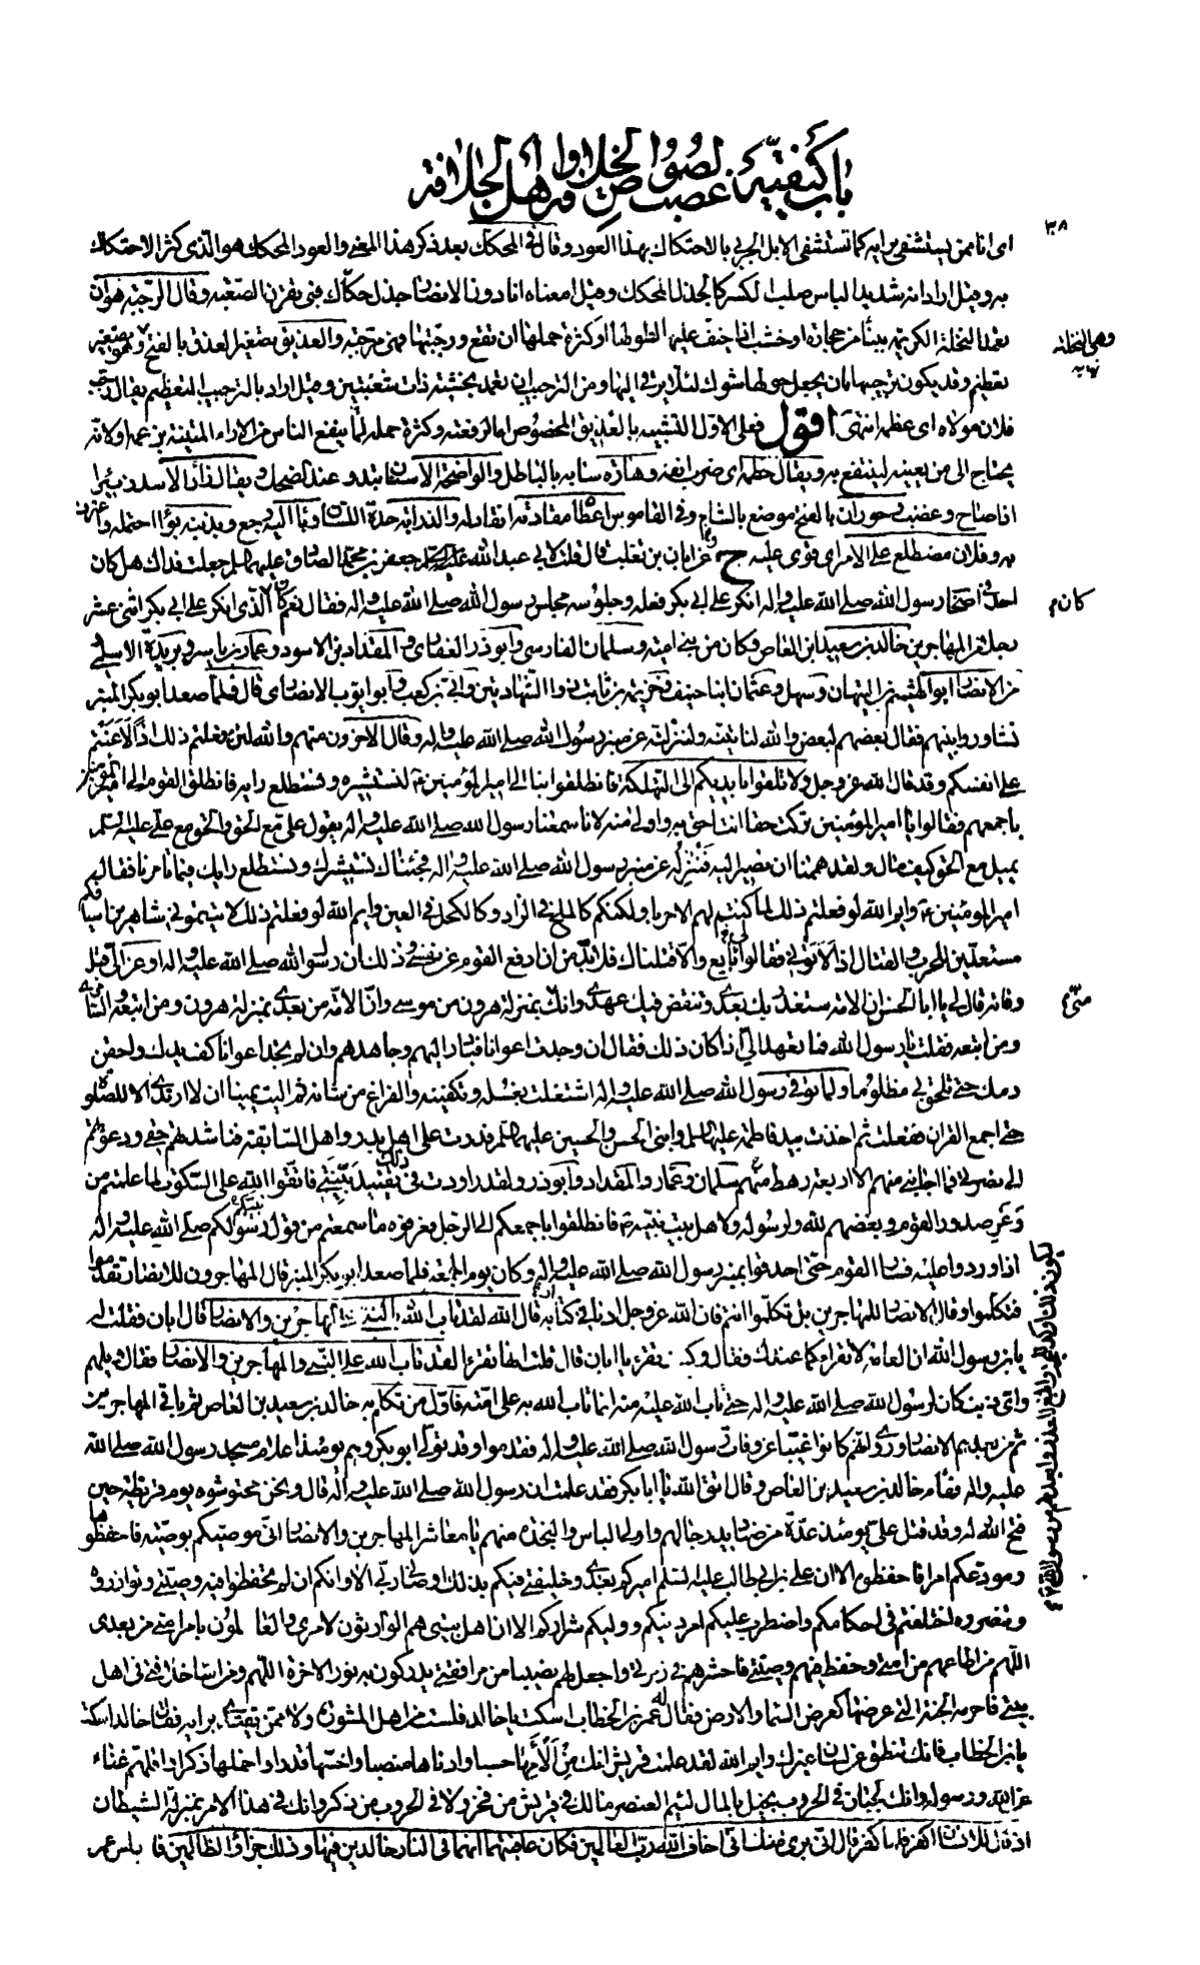 باب كيفية غصب لصوص الخلافة واهل الجلافة
٣٨
اى انا ممن يستشفى برايه كما تستشفى الابل الجربى بالاحتكاك بهذا العود وقال فى المحكك بعد ذكر هذا المعنى والعود المحكك هو الذى كثر الاحتكاك
به وقيل اراد انه شديد الباس صلب المكسر كالجذل المحكك وقيل معناه انا دون الانصار جذل حكاك فبى تقرن الصعبة وقال الرجبة هو ان
تعمد النخلة الكريمة ببناء من حجارة او خشب اذا خيف عليها لطولها او كثرة حملها ان تقع ورجبتها فهى مرجبة والعذيق تصغير العذق بالفتح وهو تصغير
وهى النخلة
تعظيم وقد يكون ترجيبها بان يجعل حولها شوك لئلا يرقى اليها ومن الترجيب ان تعمد بخشبة ذات شعبتين وقيل اراد بالترجيب التعظيم يقال رجب
فلان مولاه اى عظمه انتهى اقول فعلى الاول التشبيه بالعذيق المخصوص اما لرفعته وكثرة حمله لما ينفع الناس من الاراء المتينة بزعمه او لانه
يحتاج الى من يعينه لينتفع به ويقال خطمه اى ضرب انفه وهارة سابه بالباطل والواضحة الاسنان تبدو عند الضحك ويقال زأر الاسد زئيرا
اذا صاح وغضب وحوران بالفتح موضع بالشام وفى القاموس اعطاه مقادته انقاد له والذرابة حدة اللسان وباء اليه رجع وبذنبه بؤا احتمله واعترف
به وفلان مضطلع على الامر اى قوى عليه ج عن ابان بن تغلب قال قلت لابى عبد الله جعفر بن محمد الصادق عليهما السلم جعلت فداك هل كان
احد فى اصحاب رسول الله صلى الله عليه واله انكر على ابى بكر فعله وجلوسه مجلس رسول الله صلى الله عليه واله فقال نعم كان الذى انكر على ابى بكر اثنى عشر
كان م
رجلا من المهاجرين خالد بن سعيد ابن العاص وكان من بنى امية وسلمان الفارسى وابو ذر الغفارى والمقداد بن الاسود وعمار بن ياسر وبريدة الاسلمى
من الانصار ابو الهيثم بن التيهان وسهل وعثمان ابنا حنيف وخزيمة بن ثابت ذو الشهادتين وابى بن كعب وابو ايوب الانصارى قال فلما صعد ابو بكر المنبر
تشاوروا بينهم فقال بعضهم لبعض والله لناتينه ولننزلنه عن منبر رسول الله صلى الله عليه واله وقال الاخرون منهم والله لئن فعلتم ذلك اذا لاعنتم
على انفسكم وقد قال الله عز وجل ولا تلقوا بايديكم الى التهلكة فانطلقوا بنا الى امير المؤمنين ع لنستشيره ونستطلع رايه فانطلق القوم الى امير المؤمنين
باجمعهم فقالوا يا امير المؤمنين تركت حقا انت احق به واولى منه لانا سمعنا رسول الله صلى الله عليه واله يقول على مع الحق والحق مع على عليه السلم
يميل مع الحق كيف مال ولقد هممنا ان نصير اليه فننزله عن منبر رسول الله صلى الله عليه واله فجئناك نستشيرك ونستطلع رايك فيما تامرنا فقال
امير المومنين ع وايم الله لو فعلتم ذلك لما كنتم لهم الا حربا ولكنكم كالملح فى الزاد وكالكحل فى العين وايم الله لو فعلتم ذلك لاتيتمونى شاهرين اسيافكم
مستعدين للحرب والقتال اذا لاتونى فقالوا لى بايع والا قتلناك فلا بد من ان ادفع القوم عن نفسى وذلك ان رسول الله صلى الله عليه واله اوعز الى قبل
وفاته قال لى يا ابا الحسن ان الامة ستغدر بك بعدى وتنقض فيك عهدى وانك منى بمنزلة هرون من موسى وان الامة من بعدى بمنزلة هرون ومن اتبعه والسامرى
منى م
ومن اتبعه فقلت يا رسول الله فما تعهد الى اذا كان ذلك فقال ان وجدت اعوانا فبادر اليهم وجاهدهم وان لم تجد اعوانا كف يدك واحقن
دمك حتى تلحق بى مظلوما ولما توفى رسول الله صلى الله عليه واله اشتغلت بغسله وتكفينه والفراغ من شانه ثم اليت يمينا ان لا ارتدى الا للصلوة
حتى اجمع القران ففعلت ثم اخذت بيد فاطمة عليها السلم وابنى الحسن والحسين عليهما السلم فدرت على اهل بدر واهل السابقة فناشدتهم حقى ودعوتهم
الى نصرتى فما اجابنى منهم الا اربعة رهط منهم سلمان وعمار والمقداد وابو ذر ولقد راودت فى ذلك تقييد بينتى فاتقوا الله على السكوت لما علمتم من
وغر صدور القوم وبغضهم لله ولرسوله ولاهل بيت نبيه فانطلقوا باجمعكم الى الرجل فعرفوه ما سمعتم من قول رسولكم صلى الله عليه واله
ليكون ذلك اوكد للحجة وابلغ للعذر وابعد لهم من رسول الله ص
اذا وردوا عليه فسار القوم حتى احدقوا بمنبر رسول الله صلى الله عليه واله وكان يوم الجمعة فلما صعد ابو بكر المنبر قال المهاجرون للانصار تقدموا
فتكلموا وقال الانصار للمهاجرين بل تكلموا انتم فان الله عز وجل ادناكم فى كتابه قال الله لقد تاب الله بالنبى على المهاجرين والانصار قال ابان فقلت له
يا بن رسول الله ان العامة لا تقرا كما عندك فقال وكيف تقرء يا ابان قال قلت انها تقرء لقد تاب الله على النبى والمهاجرين والانصار فقال ويلهم
واى ذنب كان لرسول الله صلى الله عليه واله حتى تاب الله عليه منه انما تاب الله به على امته فاول من تكلم به خالد بن سعيد بن العاص ثم باقى المهاجرين
ثم من بعدهم الانصار وروى انهم كانوا غيبا عن وفات رسول الله صلى الله عليه واله فقدموا وقد تولى ابو بكر وهم يومئذ اعلام مسجد رسول الله صلى الله
عليه واله فقام خالد بن سعيد بن العاص وقال اتق الله يا ابا بكر فقد علمت ان رسول الله صلى الله عليه واله قال ونحن محتوشوه يوم قريظة حين
فتح الله له وقد قتل على يومئذ عدة من صناديد رجالهم واولى الباس والنجدة منهم يا معاشر المهاجرين والانصار انى موصيكم بوصية فاحفظوها
ومودعكم امرا فاحفظوه الا ان على بن ابى طالب عليه السلم اميركم بعدى وخليفتى فيكم بذلك اوصانى ربى الا وانكم ان لم تحفظوا فيه وصيتى وتوازروه
وتنصروه اختلفتم فى احكامكم واضطرب عليكم امر دينكم ووليكم شراركم الا ان اهل بيتى هم الوارثون لامرى والعالمون بامر امتى من بعدى
اللهم من اطاعهم من امتى وحفظ فيهم وصيتى فاحشرهم فى زمرتى واجعل لهم نصيبا من مرافقتى يدركون به نور الاخرة اللهم ومن اساء خلافتى فى اهل
بيتى فاحرمه الجنة التى عرضها كعرض السماء والارض فقال له عمر بن الخطاب اسكت يا خالد فلست من اهل المشورة ولا ممن يقتدى برايه فقال خالد اسكت
يا بن الخطاب فانك تنطق عن لسان غيرك وايم الله لقد علمت قريش انك من الأمها حسبا وادناها منصبا واخسها قدرا واخملها ذكرا واقلهم غناء
عن الله ورسوله وانك لجبان فى الحروب بخيل بالمال لئيم العنصر مالك فى قريش من فخر ولا فى الحروب من ذكر وانك فى هذا الامر بمنزلة الشيطان
اذ قال للانسان اكفر فلما كفر قال انى برى منك انى اخاف الله رب العالمين فكان عاقبتهما انهما فى النار خالدين فيها وذلك جزاؤ الظالمين فابلس عمر